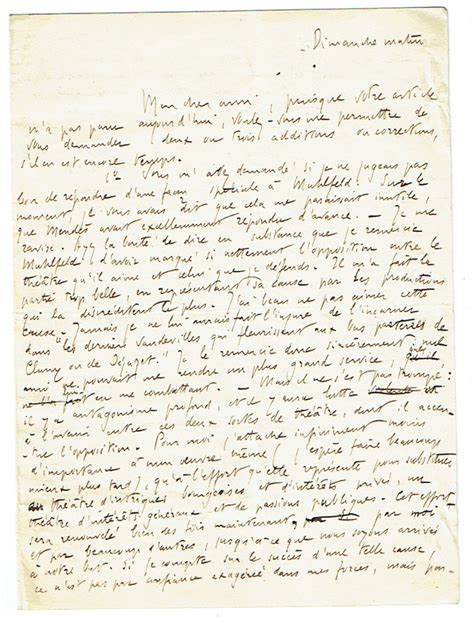 Dimanche matin
Mon cher ami, puisque votre article
n'a pas paru aujourd'hui, voulez-vous me permettre de
vous demander deux ou trois additions ou corrections,
s'il en est encore temps.
1° Vous m'avez demandé si je ne jugeais pas
bon de répondre d'une façon spéciale à Muhlfeld. Sur le
moment, je vous avais dit que cela me paraissait inutile,
que Mendès ayant excellemment répondu d'avance. – Je me
ravise. Ayez la bonté de dire en substance que je remercie
Muhlfeld d'avoir marqué si nettement l'opposition entre le
théâtre qu'il aime et celui que je défends. Il m'a fait la
partie trop belle, en représentant sa cause par les productions
qui la discréditent le plus. J'ai beau ne pas aimer cette
cause. – Jamais je ne lui aurais fait l'injure de l'incarner
dans "les derniers vaudevilles qui fleurissent aux bas parterres de
Cluny ou de Déjazet." Je le remercie donc sincèrement; nul
ami ne pouvait me rendre un plus grand service, qu'il
en me combattant. – Mais il ne s'est pas trompé:
il y a antagonisme profond, et il y aura lutte
à l'avenir entre ces deux sortes de théâtre, dont il accen-
tue l'opposition. Pour moi, j'attache infiniment moins
d'importance à mon œuvre même (j'espère faire beaucoup
mieux plus tard), qu'à l'effort qu'elle représente pour substituer
au théâtre d'intrigues bourgeoises et d'intérêts privés, un
théâtre d'intérêts généraux et de passions publiques. Cet effort
sera renouvelé bien des fois maintenant, par moi
et par beaucoup d'autres, jusqu'à ce que nous soyons arrivés
à notre but. Si je compte sur le succès d'une telle cause,
ce n'est pas par confiance exagérée dans mes forces, mais par-